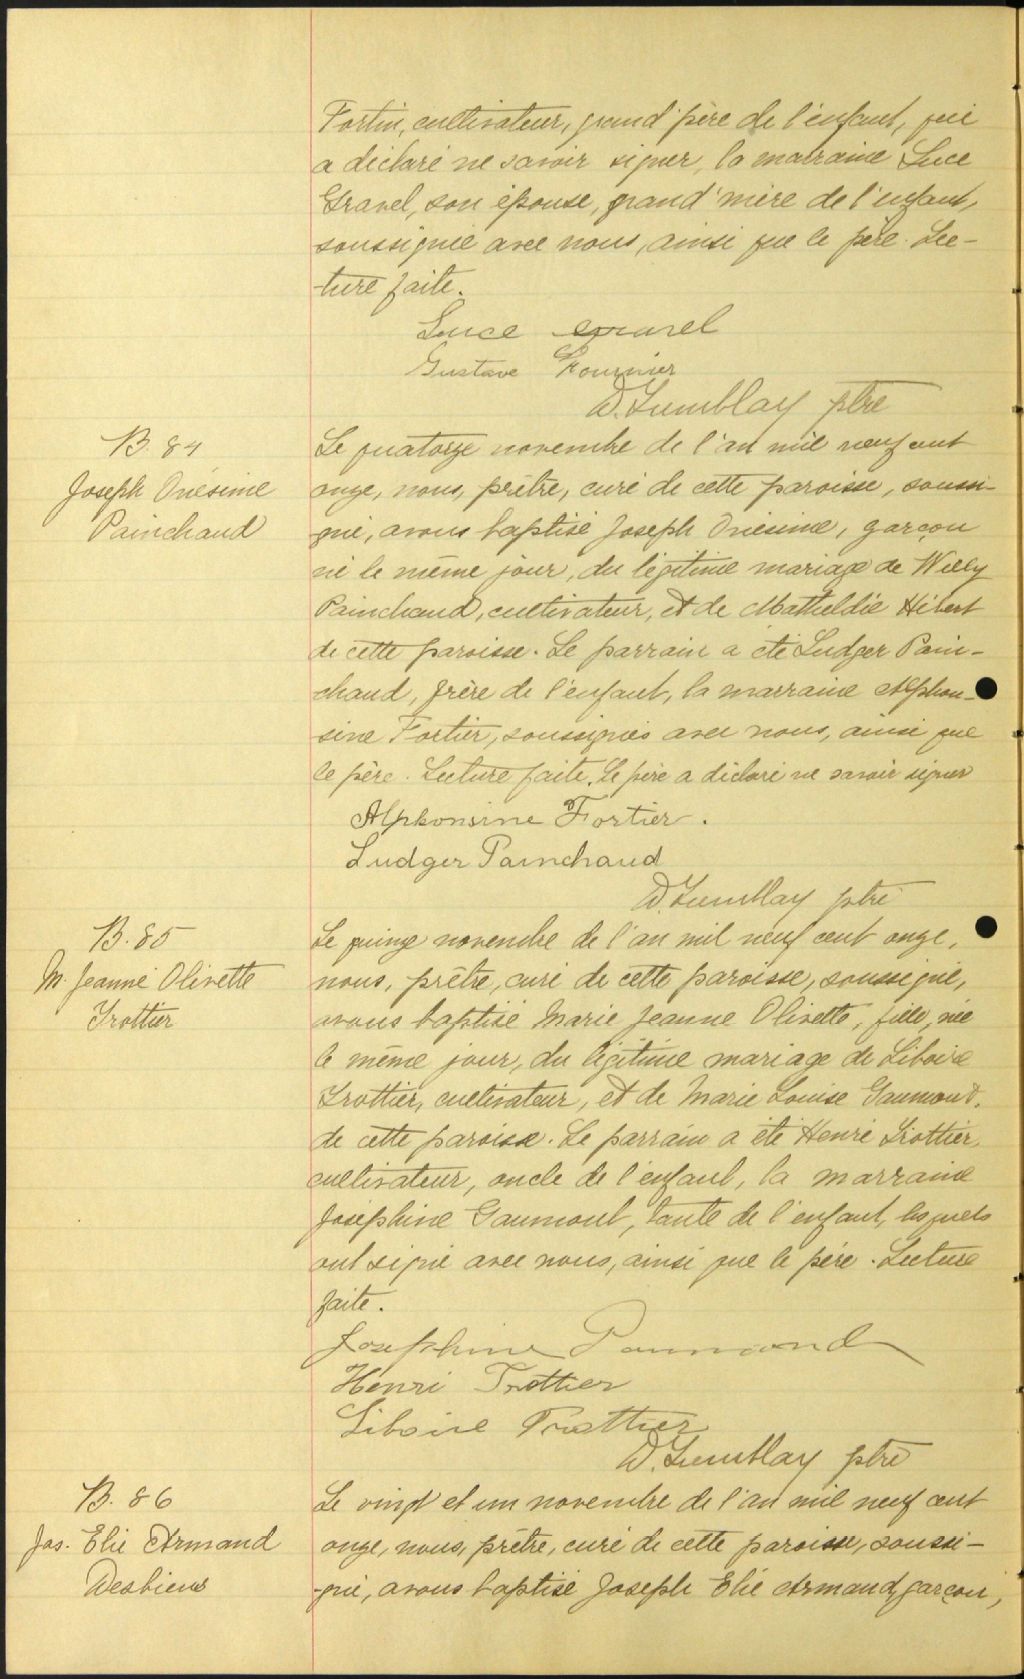 Fortin, cultivateur, grand'père de l'enfant, qui
a déclaré ne savoir signer, la marraine Luce
Gravel, son épouse, grand'mère de l'enfant,
soussignée avec nous, ainsi que le père. Lec-
-ture faite.
Luce Gravel
Gustave Fournier
D. Tremblay ptre
B. 84
Joseph Onésime
Painchaud
Le quatorze novembre de l'an mil neuf cent
onze, nous, prêtre, curé de cette paroisse, soussi-
gné, avons baptisé Joseph Onésime, garçon
né le même jour, du légitime mariage de Willy
Painchaud, cultivateur, et de Mathildée Hébert
de cette paroisse. Le parrain a été Ludger Pain-
chaud, frère de l'enfant, la marraine Alphon-
sine Fortier, soussignés avec nous, ainsi que
le père. Lecture faite. Le père a déclaré ne savoir signer
Alphonsine Fortier.
Ludger Painchaud
D. Tremblay ptre
B. 85
M. Jeanne Olivette
Trottier
Le quinze novembre de l'an mil neuf cent onze,
nous, prêtre, curé de cette paroisse, soussigné,
avons baptisé Marie Jeanne Olivette, fille, née
le même jour, du légitime mariage de Liboire
Trottier, cultivateur, et de Marie Louise Gaumont,
de cette paroisse. Le parrain a été Henri Trottier,
cultivateur, oncle de l'enfant, la marraine
Joséphine Gaumont, tante de l'enfant, lesquels
ont signé avec nous, ainsi que le père. Lecture
faite.
Josephine
Henri Trottier
Liboire Trottier
D. Tremblay ptre
B. 86
Jos. Elie Armand
Desbiens
Le vingt et un novembre de l'an mil neuf cent
onze, nous, prêtre, curé de cette paroisse, soussi-
-gné, avons baptisé Joseph Elie Armand, garçon,